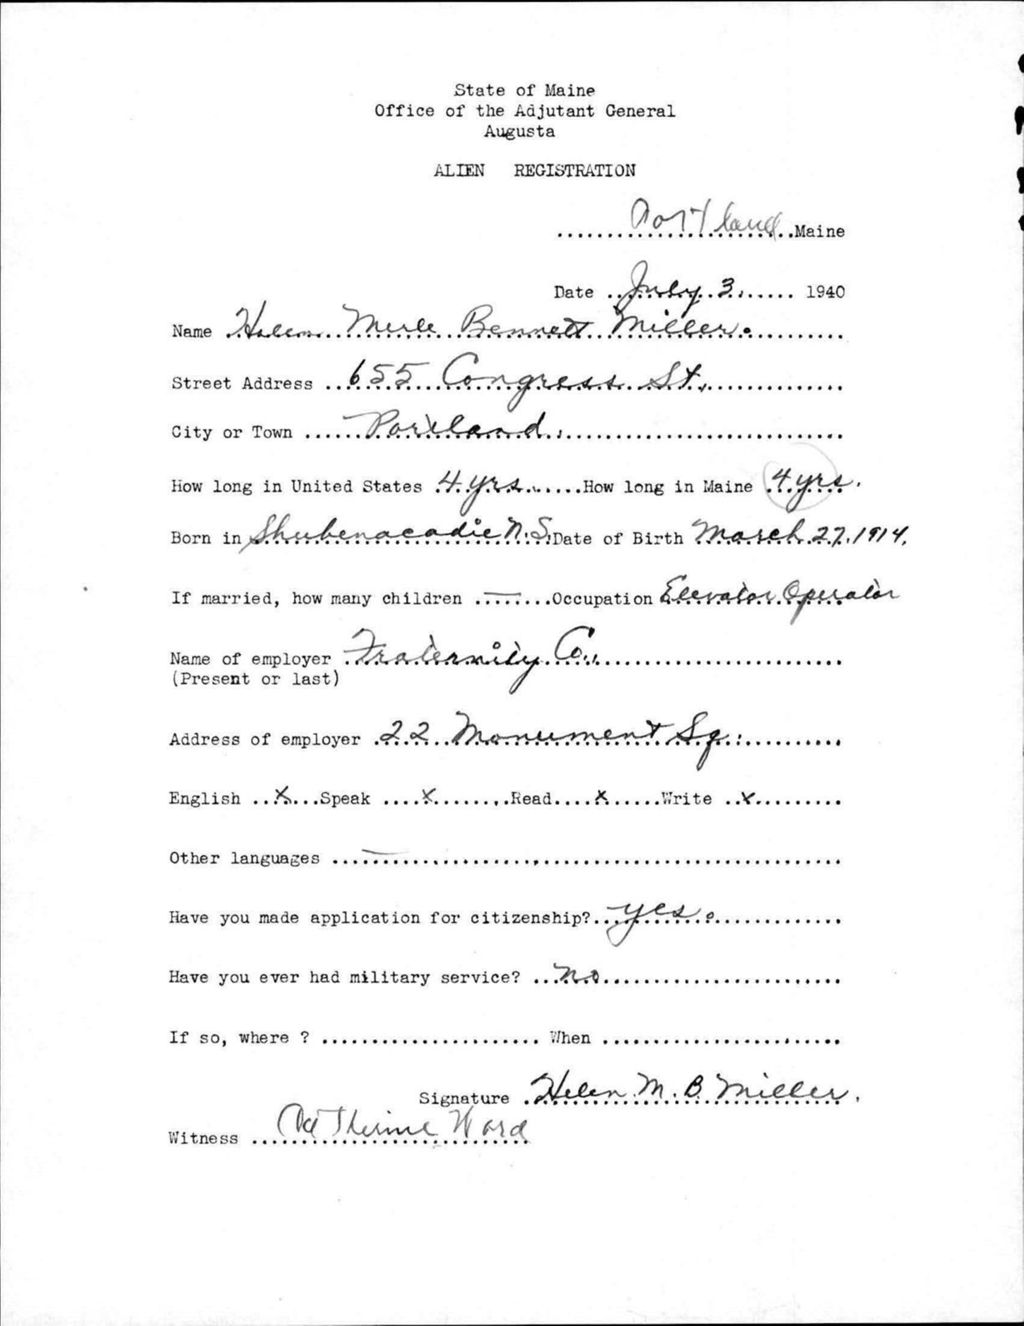 State of Maine
Office of the Adjutant General
Augusta
ALIEN REGISTRATION
Portland Maine
Date July 3, 1940
Name Helen Merle Bennett Miller.
Street Address 655 Congress St.
City or Town Portland.
How long in United States 4 yrs. How long in Maine 4 yrs.
Born in Shubenacadie N.S. Date of Birth March 27, 1914.
If married, how many children — Occupation Elevator Operator
Name of employer Fraternity Co.
(Present or last)
Address of employer 22 Monument Sq.
English x Speak x Read x Write x
Other languages —
Have you made application for citizenship? yes.
Have you ever had military service? no
If so, where ? When
Signature Helen M. B. Miller.
Witness Catherine Ward